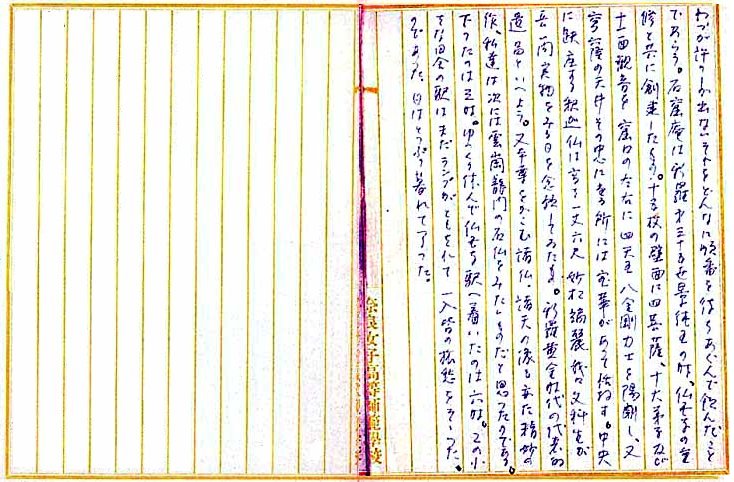 わづか許りしか出ないそれをどんなに順番を待ちあぐんで飲んだこと
であらう。石窟庵は新羅第三十五世景徳王の時、仏国寺の重
修と共に創建したもの。十五枚の壁面に四菩薩、十大弟子など
十一面観音を窟口のたなに四天王八金剛力士を陽刻し、又
穹窿の天井その中心に当る所には宝華があつて
に趺座する釈迦仏は高さ一丈六尺 妙相端麗 我々文科生が
長い間実物をみる日を念願してゐたもの。新羅黄金時代の代表的
遺品といへよう。又本尊をかこむ諸仏、諸天の像も亦た精妙の
作、私達は次には雲崗龍門の石仏をみたいものだと思つたのである。
下つたのは三時。ゆつくり休んで仏国寺駅へ着いたのは六時。この小
さな田舎の駅はまだランプがともされて 一入皆の旅愁をそゝつた。
のであつた。日はとつぷり暮れて了つた。
奈良女子高等師範学校